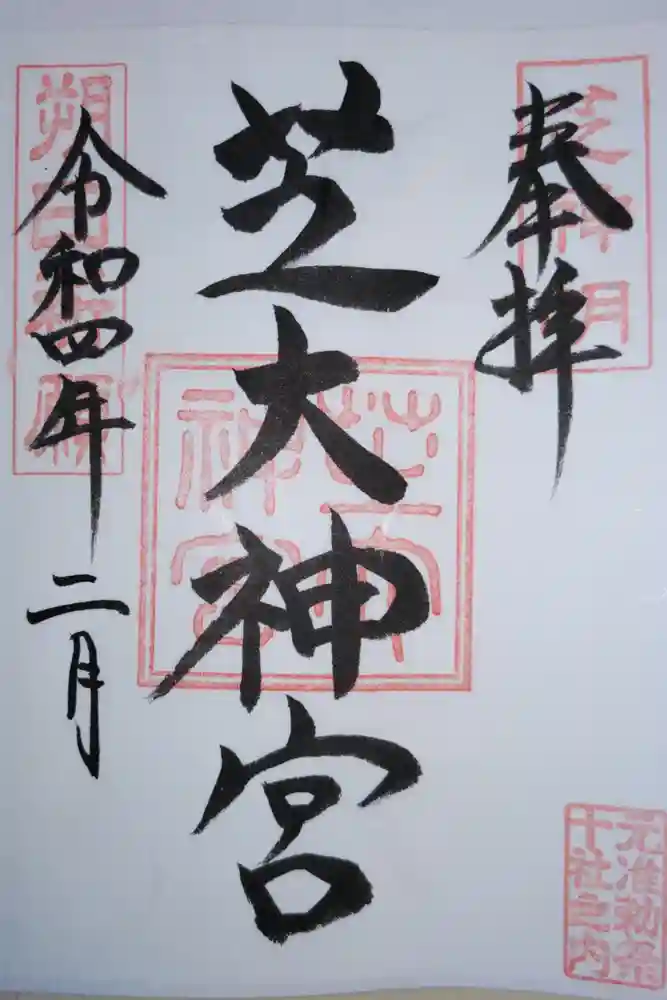 奉拝
芝神明
芝大神宮
芝大神宮
令和四年
二月
朔日
元准勅祭
十社之内